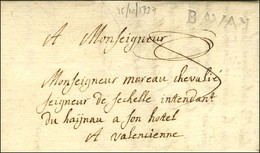 15/10/1737
BAVAY
A Monseigneur
Monseigneur moreau chevalier
seigneur de sechelle intendant
du haijnau a son hostel
A valencienne